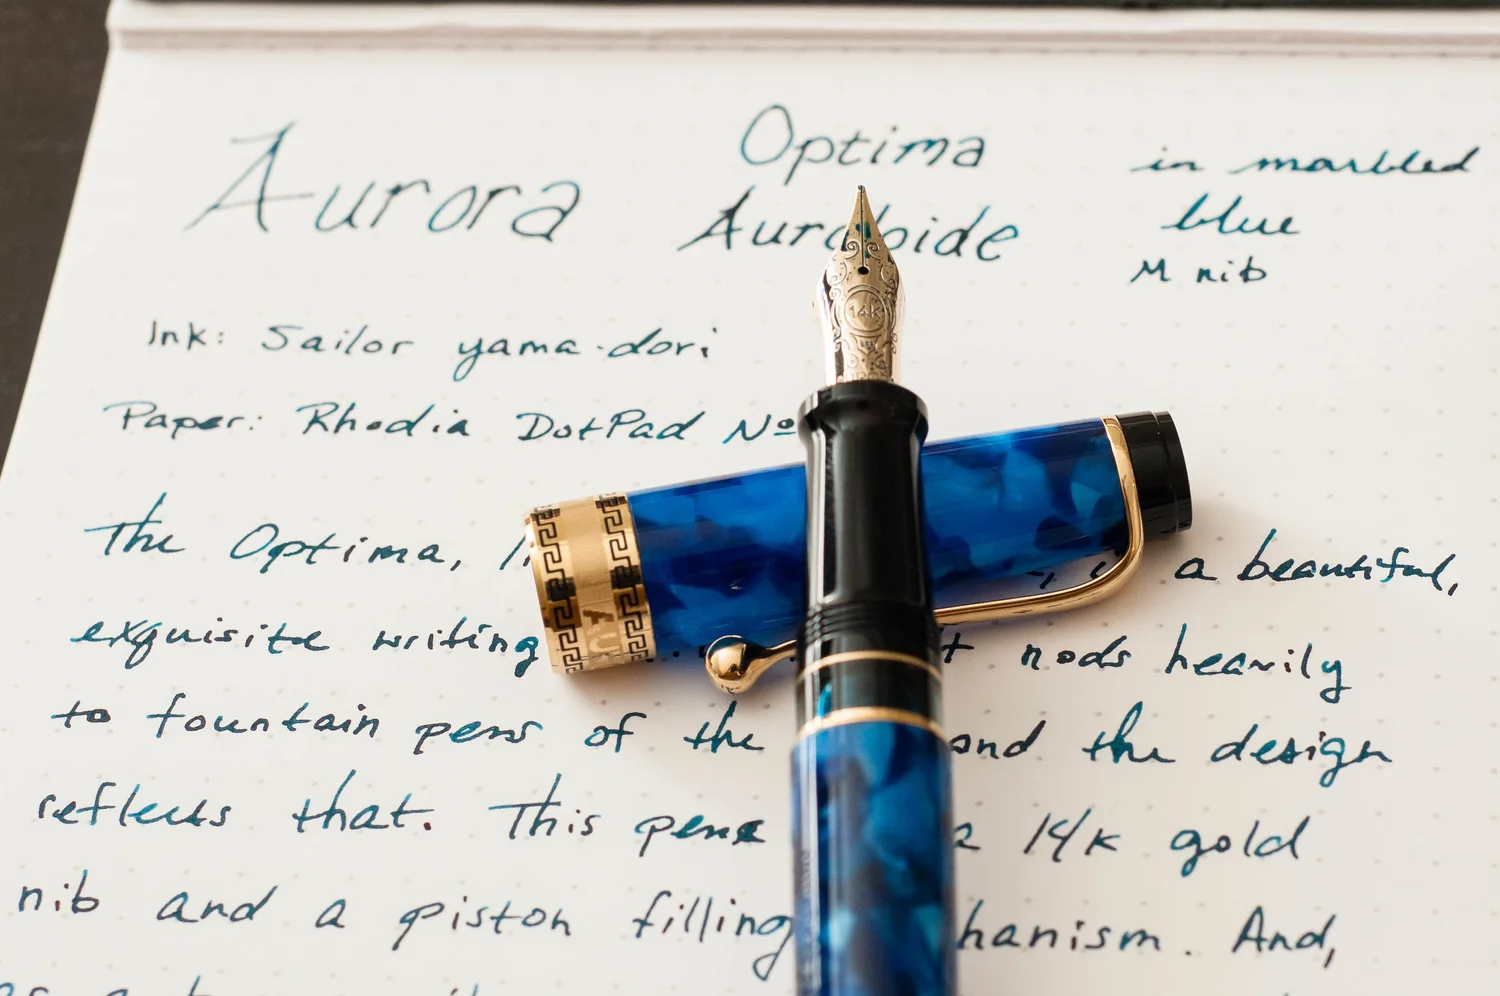 Aurora
Optima
Auroloide
in marbled
blue
M nib
Ink: Sailor yama-dori
Paper: Rhodia DotPad Nº
The Optima, a beautiful,
exquisite writing nods heavily
to fountain pens of the and the design
reflects that. This pens a 14K gold
nib and a piston filling mechanism. And,
14K